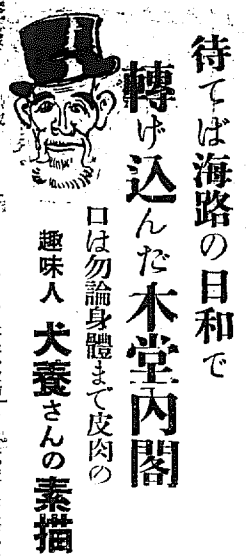 待てば海路の日和で
轉げ込んだ木堂内閣
口は勿論身體まで皮肉の
趣味人 犬養さんの素描